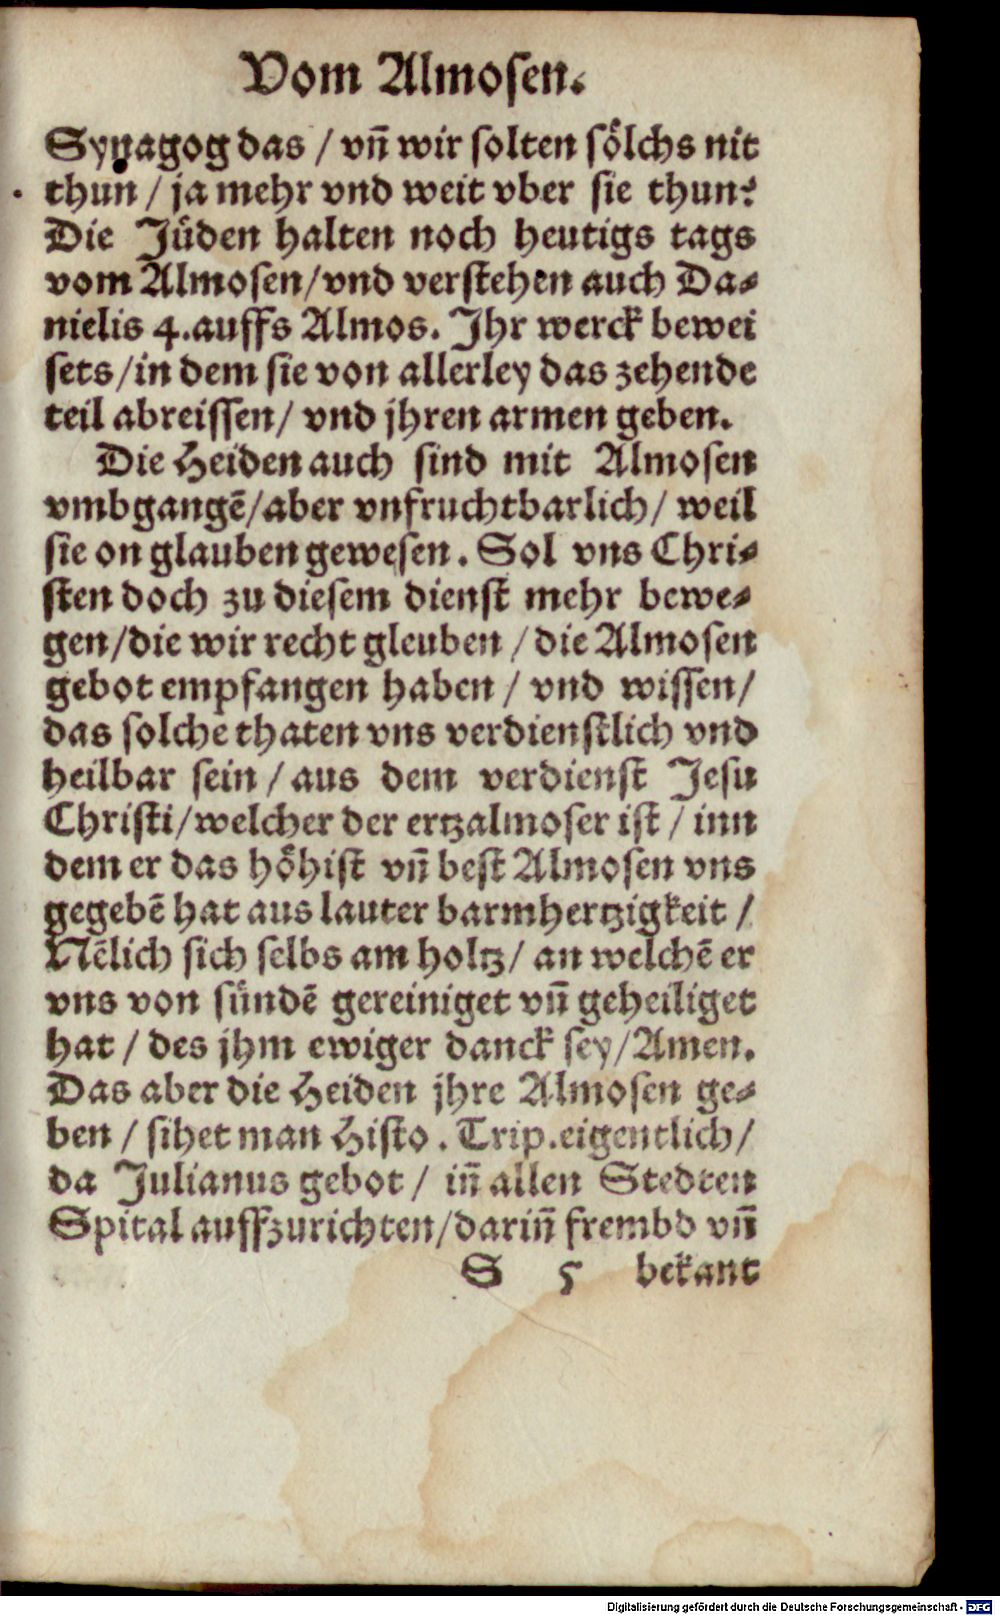 Vom Almosen.
Synagog das / vñ wir solten sölchs nit
thun / ja mehr vnd weit vber sie thun?
Die Jüden halten noch heutigs tags
vom Almosen/vnd verstehen auch Da⸗
nielis 4.auffs Almos. Ihr werck bewei
sets/in dem sie von allerley das zehende
teil abreissen/ vnd jhren armen geben.
Die Heiden auch sind mit Almosen
vmbgangē/aber vnfruchtbarlich/ weil
sie on glauben gewesen. Sol vns Chri⸗
sten doch zu diesem dienst mehr bewe⸗
gen/die wir recht gleuben / die Almosen
gebot empfangen haben / vnd wissen/
das solche thaten vns verdienstlich vnd
heilbar sein / aus dem verdienst Jesu
Christi/welcher der ertzalmoser ist / inn
dem er das höhist vñ best Almosen vns
gegebē hat aus lauter barmhertzigkeit /
Nēlich sich selbs am holtz/ an welchē er
vns von sündē gereiniget vñ geheiliget
hat / des jhm ewiger danck sey/Amen.
Das aber die Heiden jhre Almosen ge⸗
ben / sihet man Histo. Trip.eigentlich/
da Julianus gebot / iñ allen Stedten
Spital auffzurichten/dariñ frembd vñ
S 5 bekant
Digitalisierung gefördert durch die Deutsche Forschungsgemeinschaft - DFG